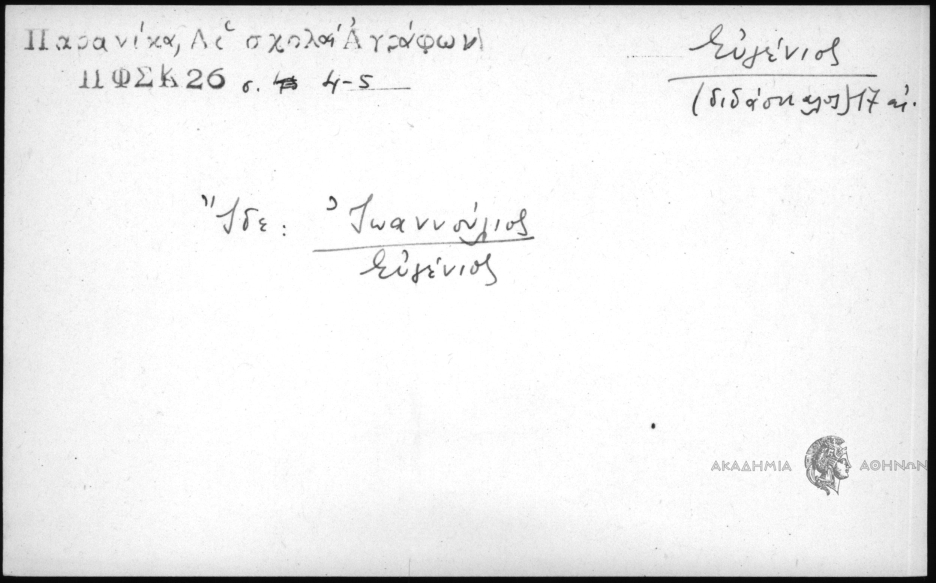 Παρανίκα, Αἱ σχολαί Ἀγράφων
ΠΦΣΚ26 σ. 4-5
Εὐγένιος
(διδάσκαλος) 17 αἰ.
Ἴδε: Ἰωαννούλιος
Εὐγένιος
ΑΚΑΔΗΜΙΑ ΑΘΗΝΩΝ